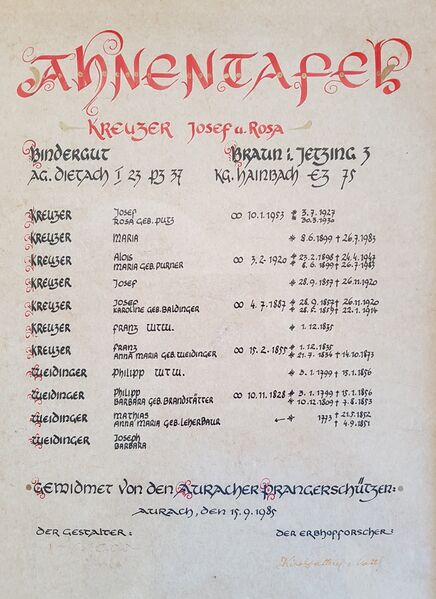 AHNENTAFEL
KREUZER JOSEF u. ROSA
BINDERGUT BRAUN i. JETZING 3
AG. DIETACH I 23 PZ 37 KG. HAINBACH EZ 75
KREUZER JOSEF ∞ 10.1.1953 * 3.7.1927
ROSA GEB. PUTZ * 30.3.1930
KREUZER MARIA * 8.6.1899 † 26.7.1983
KREUZER ALOIS ∞ 3.2.1920 * 23.2.1898 † 24.4.1947
MARIA GEB. PURNER * 8.6.1899 † 26.7.1983
KREUZER JOSEF * 28.9.1857 † 26.11.1920
KREUZER JOSEF ∞ 4.7.1887 * 28.9.1857 † 26.11.1920
KAROLINE GEB. BALDINGER † 22.1.1914
KREUZER FRANZ WTW. * 1.12.1835
KREUZER FRANZ ∞ 15.2.1855 * 1.12.1835
ANNA MARIA GEB. WEIDINGER * 21.7.1834 † 14.10.1873
WEIDINGER PHILIPP WTW. * 3.1.1799 † 15.1.1856
WEIDINGER PHILIPP ∞ 10.11.1828 * 3.1.1799 † 15.1.1856
BARBARA GEB. BRANDSTÄTTER * 10.12.1809 † 7.8.1853
WEIDINGER MATHIAS ← * 1773 † 21.5.1852
ANNA MARIA GEB. LEHERBAUR † 4.9.1851
WEIDINGER JOSEPH
BARBARA
GEWIDMET VON DEN AURACHER PRANGERSCHÜTZEN:
AURACH, DEN 15.9.1985
DER GESTALTER: DER ERBHOFFORSCHER: